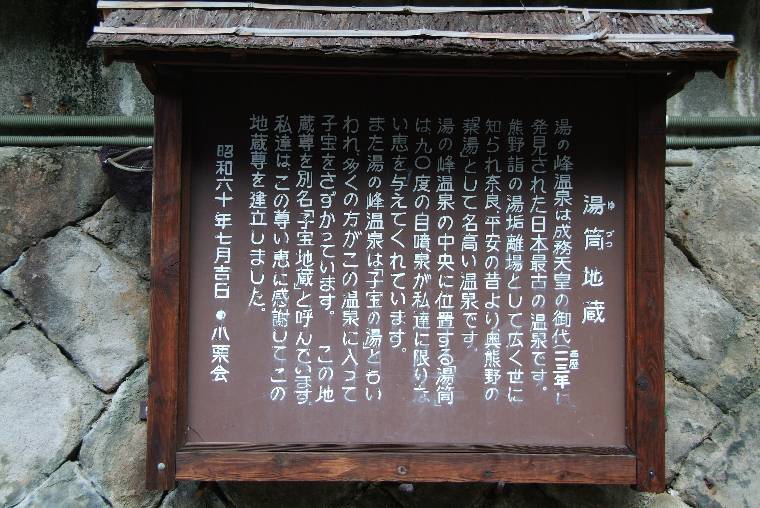 湯筒地蔵
ゆづつ
湯の峰温泉は成務天皇の御代(西歴一三三年)に
発見された日本最古の温泉です。
熊野詣の湯垢離場として広く世に
知られ奈良、平安の昔より奥熊野の
「薬湯」として名高い温泉です。
湯の峰温泉の中央に位置する湯筒
は九〇度の自噴泉が私達に限りな
い恵を与えてくれています。
また湯の峰温泉は「子宝の湯」ともい
われ、多くの方がこの温泉に入って
子宝をさずかっています。 この地
蔵尊を別名「子宝地蔵」と呼んでいます。
私達は、この尊い恵に感謝してこの
地蔵尊を建立しました。
昭和六十年七月吉日 ● 小栗会